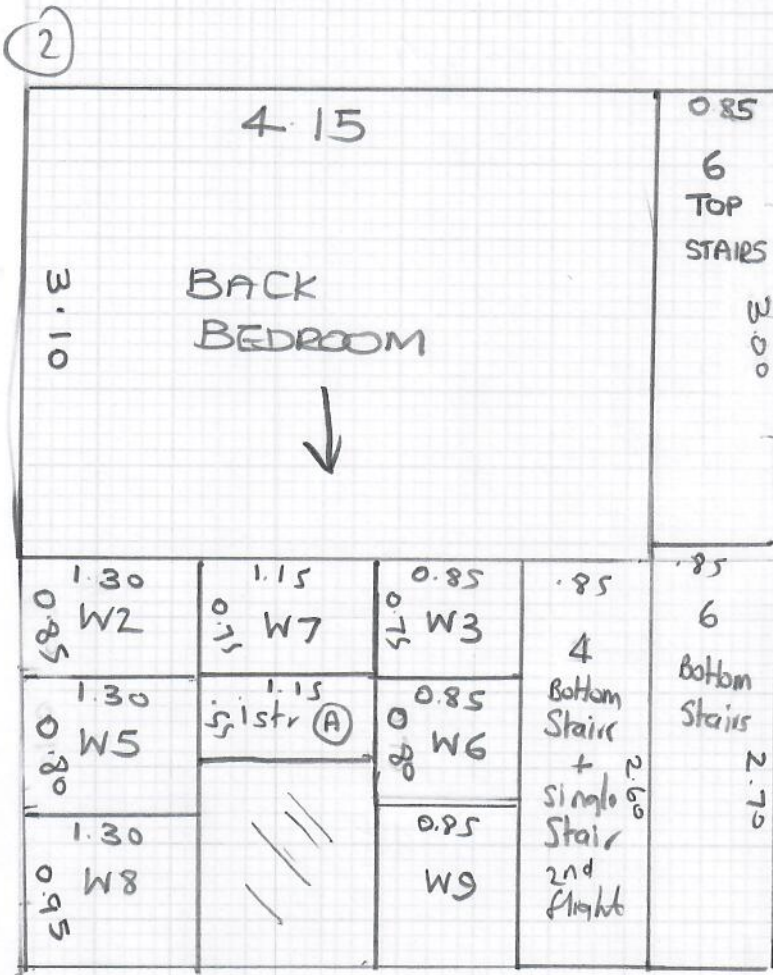 2
4.15
3.10
BACK
BEDROOM
0.85
6
TOP
STAIRS
3.00
1.30
0.85
W2
1.15
0.75
W7
0.85
0.75
W3
.85
4
Bottom
Stairs
+
Single
Stair
2nd
flight
2.60
.85
6
Bottom
Stairs
2.70
1.30
0.80
W5
1.15
1str A
0.85
0.80
W6
1.30
0.95
W8
0.85
W9